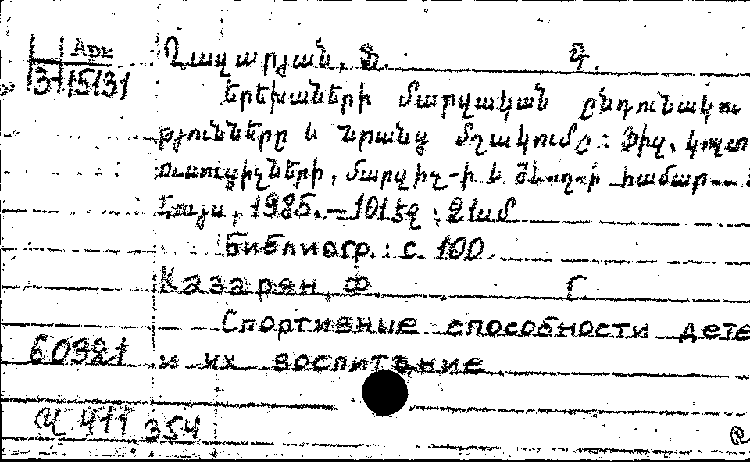 Арм
3-15131
Ղազարյան, Ֆ. Գ.
Երեխաների մարզական ընդունակու
թյունները և նրանց մշակումը: Ֆիզ. կուլտ
ուսուցիչների, մարզիչ-ի և ծնող-ի համար
Լույս, 1985. – 101 էջ ; 21սմ
Библиогр.: с. 100.
Казарян, Ф. Г.
Спортивные способности дете
60981 и их воспитание
354